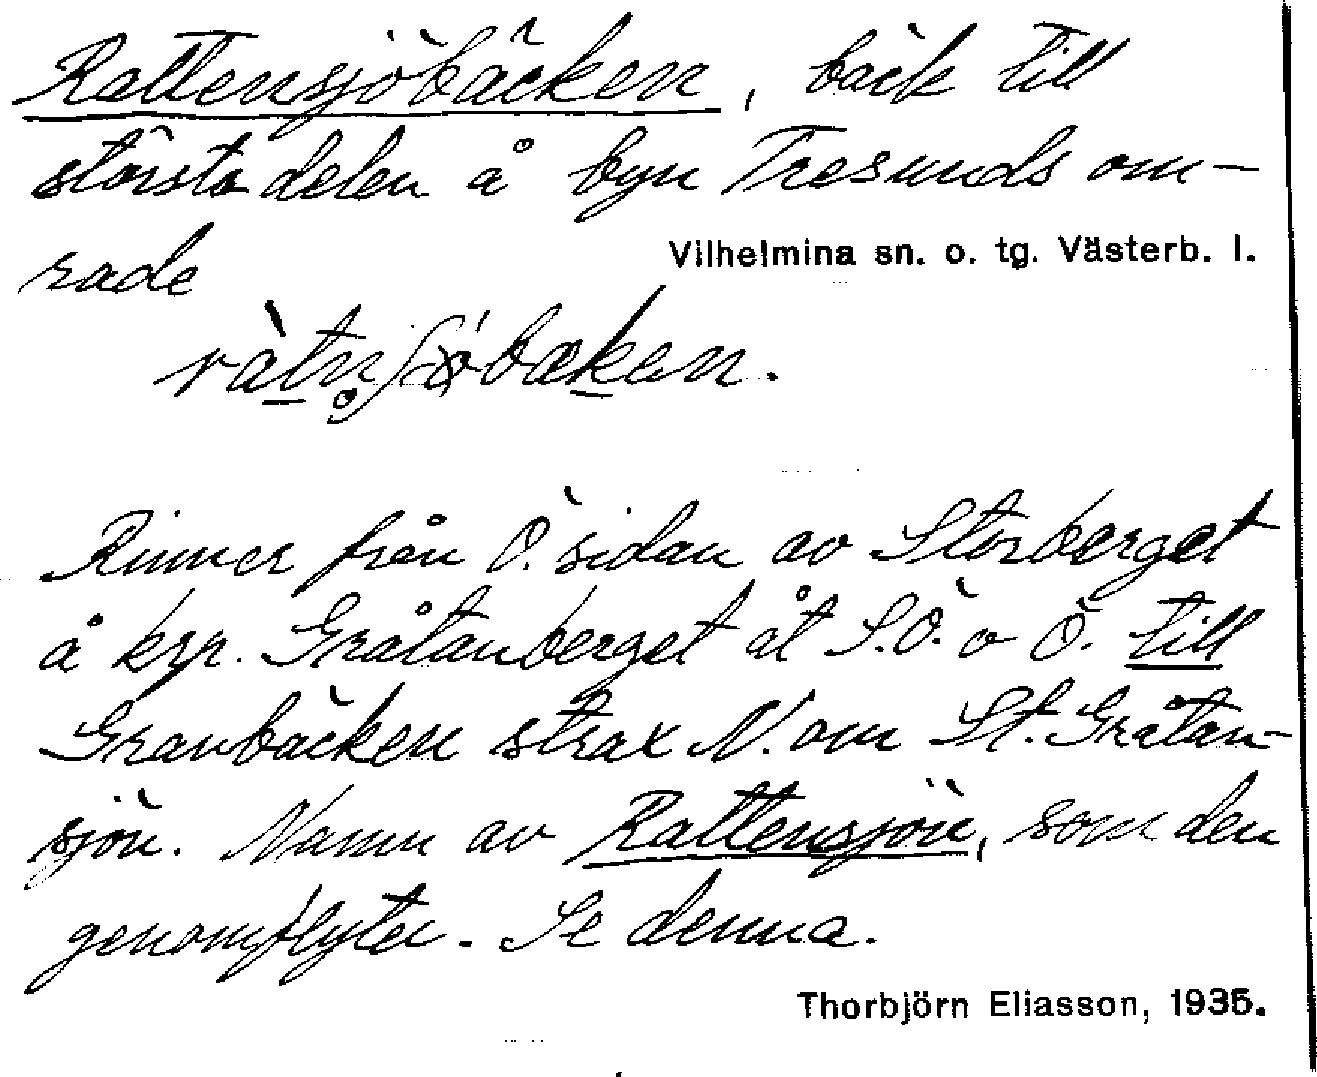 Rattensjöbäcken, bäck till
största delen å byn Tresunds om-
råde
Vilhelmina sn. o. tg. Västerb. l.
Rinner från Ö. sidan av Storberget
å krp. Gråtanberget åt S.Ö. o Ö. till
Granbäcken strax N. om St. Gråtan-
sjön. Namn av Rattensjön, som den
genomflyter. Se denna.
Thorbjörn Eliasson, 1935.